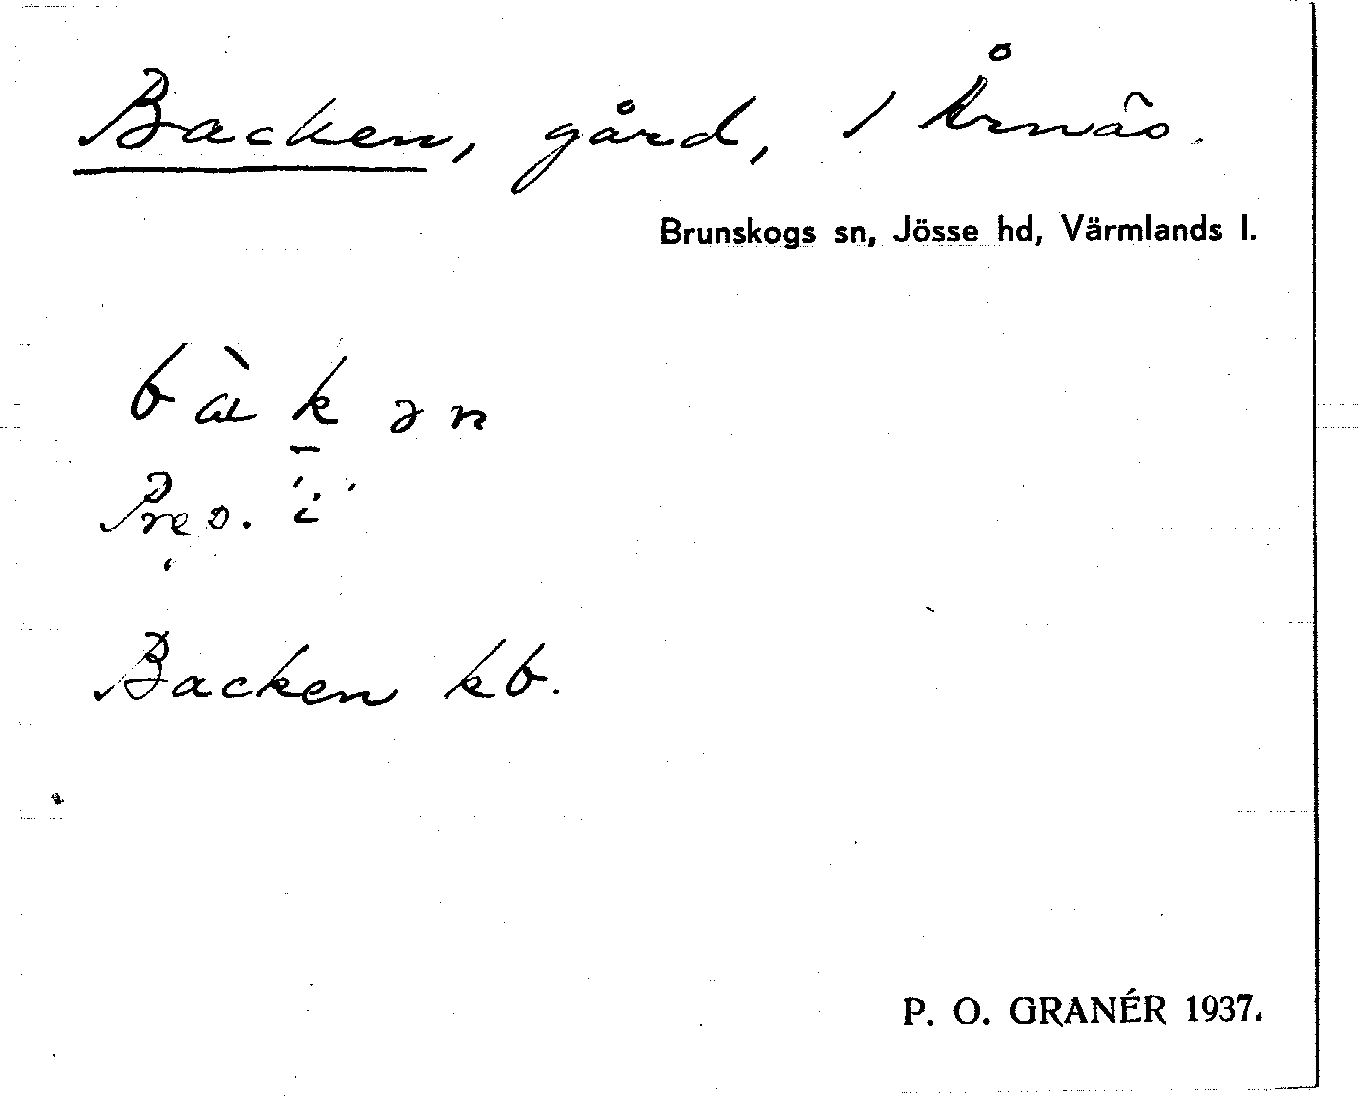 Backen, gård, / Årnäs.
Brunskogs sn, Jösse hd, Värmlands l.
bàk̠ən
Prep. 'i'
Backen kb.
P. O. GRANÉR 1937.